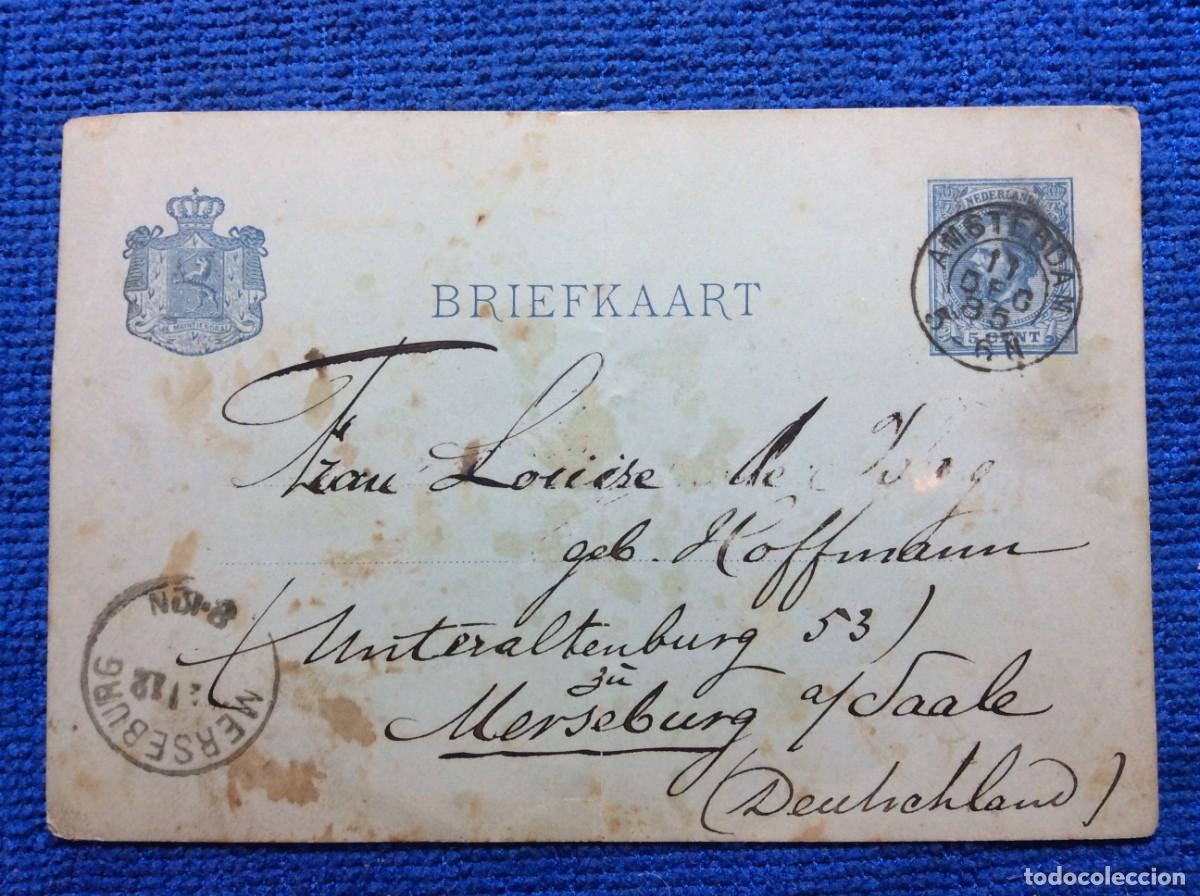 JE MAINTIENDRAI
BRIEFKAART
NEDERLAND
5 CENT
AMSTERDAM
DEC
5-6 N
Frau Louise de
geb. Hoffmann
(Unteraltenburg 53)
zu
Merseburg a/Saale
(Deutschland)
MERSEBURG
todocoleccion